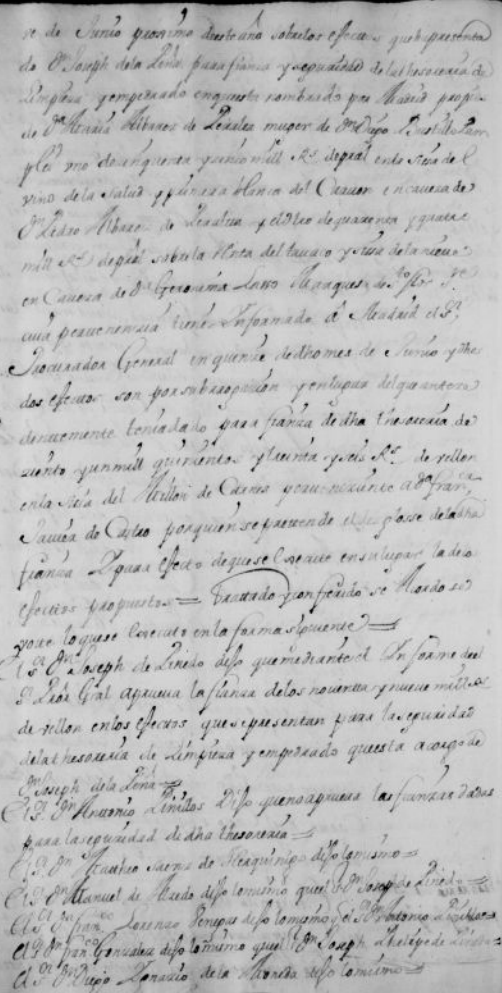 te de Junio proximo deeste año sobre los efectos que ha presenta
do Dn Joseph dela Peña para fianza y seguridad dela thesoreria de
Limpieza y empedrado enquesta nombrado por Madrid propios
de Da Maria Albarez de Peralta muger de Dn Diego Bustillo Pam
pley uno de cinquenta y cinco mill Rs. depral enla sisa del
vino dela salud y primera blanca del Carvon en caveza de
Dn Pedro Albarez de Peralta y el otro de quarenta y quatro
mill Rs. depral sobre la Renta del tavaco y sisa dela nieve
en Caveza de Da Geronima Marquesa de
cuia pertenenzia tiene Informado á Madrid el Sr.
Procurador General en quinze de dho mes de Junio y dhos
dos efectos son por subrogazion y enlugar del que antece
dentemente tenia dado para fianza de dha thesoreria de
ziento y un mill quinientos y treinta y seis Rs. de vellon
enla sisa del Millon de Carnes perteneziente a Da Franca
Xaviera de Castro por quien se pretende el desglosse dela dha
fianza Y para efecto de que se execute en su lugar la delos
efectos propuestos = Trattado y conferido se Acordo se
vote lo que se executo en la forma siguiente =
El Sr. Dn Joseph de Pinedo dijo que mediante el Informe del
Sr. Pror Gral aprueva la fianza delos noventa y nueve mill Rs
de vellon en los efectos que se presentan para la seguridad
dela thesoreria de Limpieza y empedrado questa a cargo de
Dn Joseph dela Peña =
El Sr. Dn Anttonio Pinillos Dijo que no aprueva las fianzas dadas
para la seguridad de dha thesoreria =
El Sr. Dn Matheo Saenz de dijo lo mismo =
El Sr. Dn Manuel de dijo lo mismo que el Sr. Dn Joseph de Pinedo =
El Sr. Dn Franco Lorenzo dijo lo mismo q el Sr. Dn Antonio Pinillos =
El Sr. Dn Franco Gonzalez dijo lo mismo que el Sr. Dn Joseph Phelipe de Pinedo =
El Sr. Dn Diego Ignazio de la Moneda dijo lo mismo =